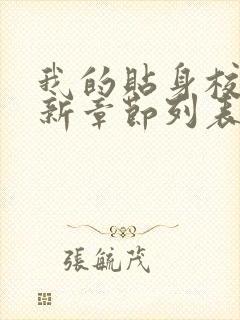 我的貼身校
新章節列表
張毓茂